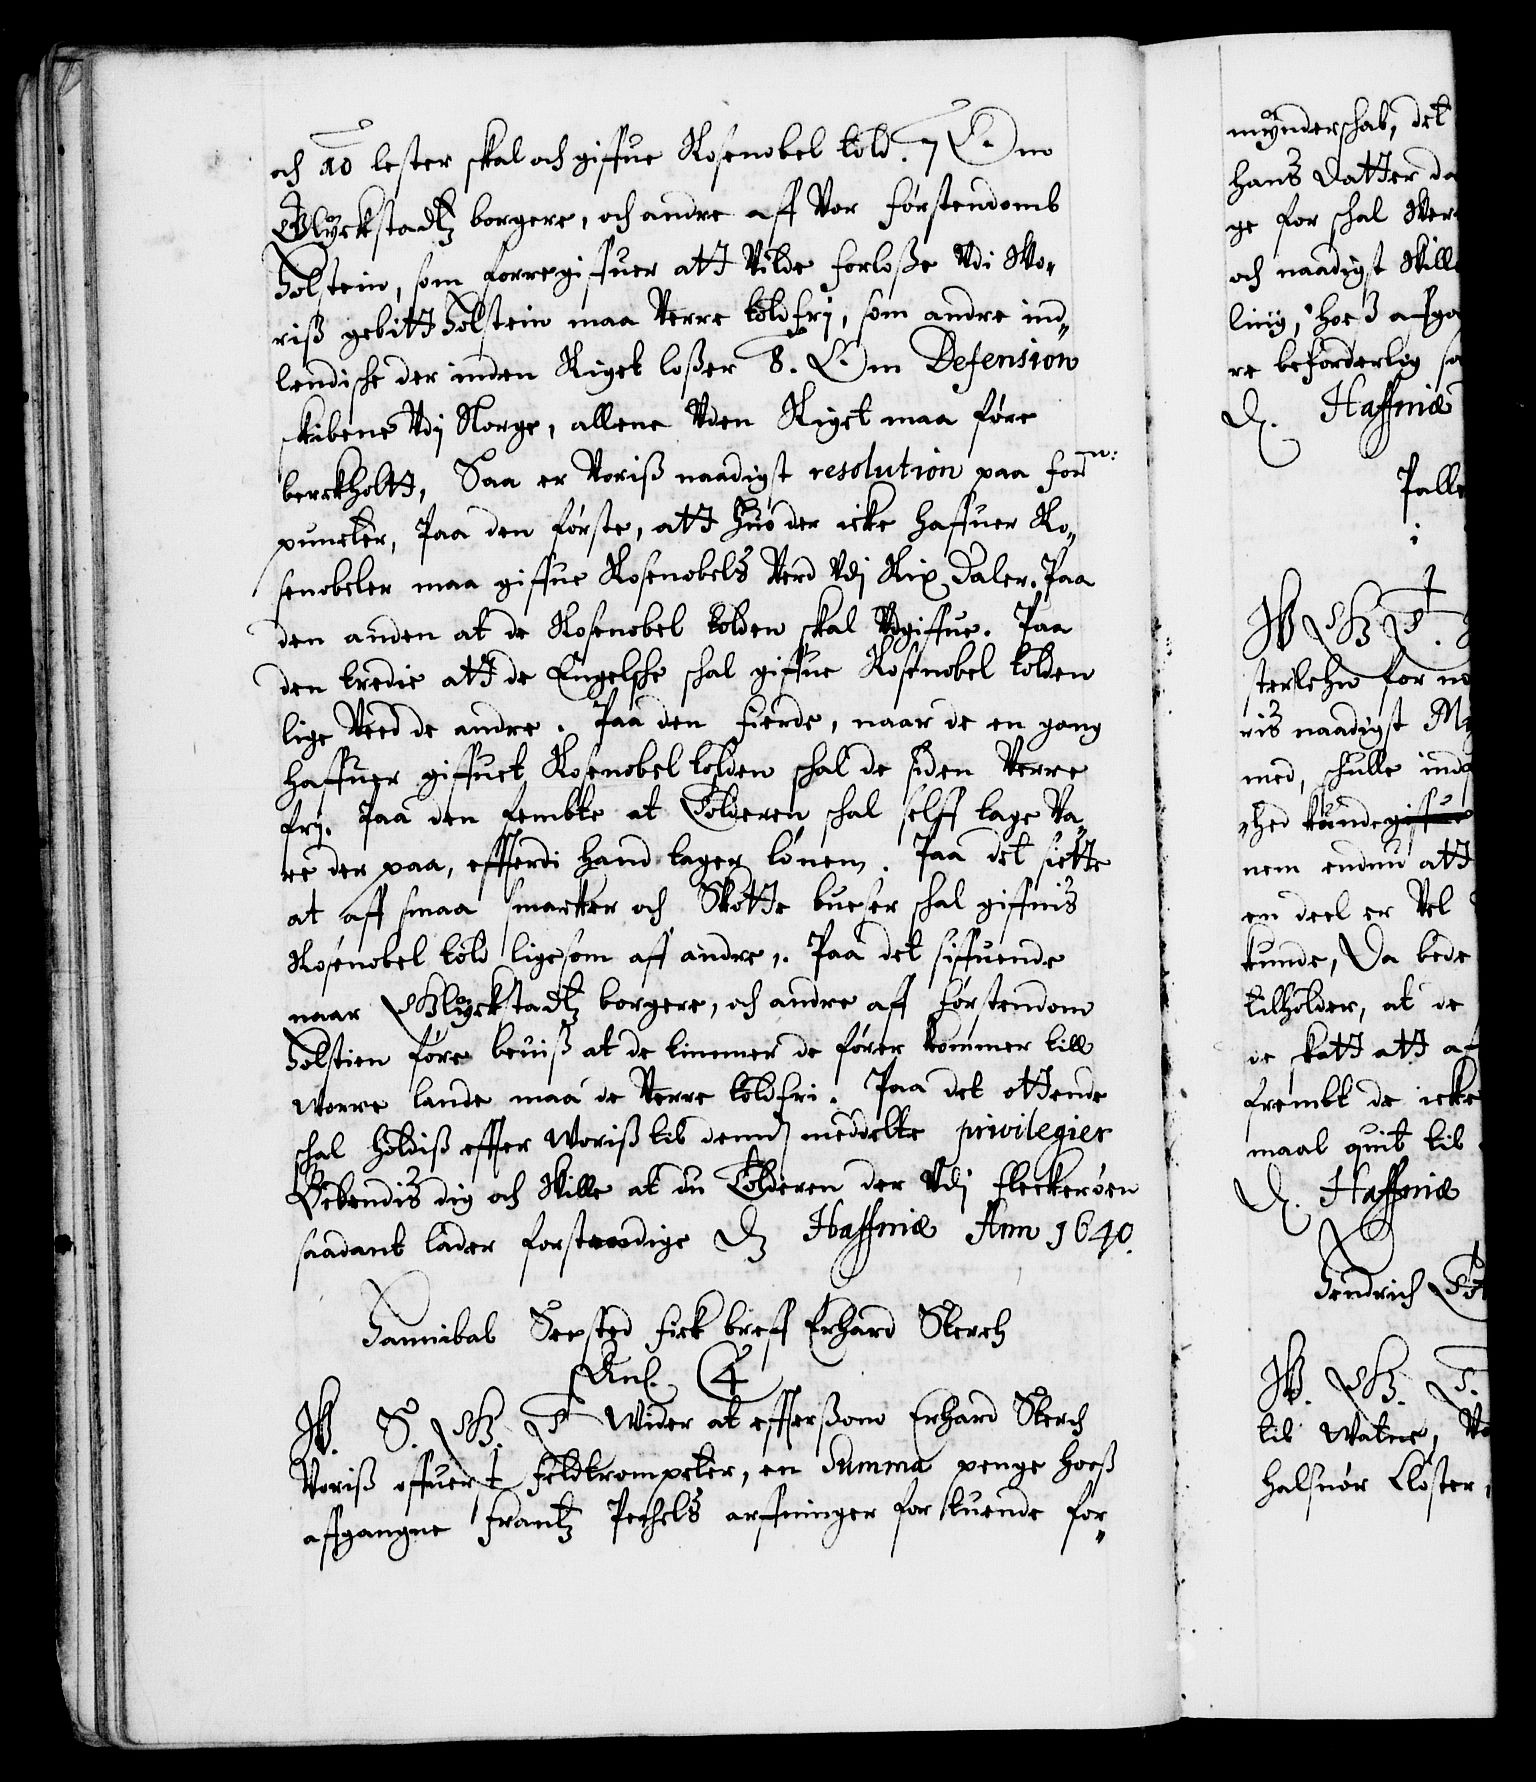 och 10 lester skal och giffue Rosenobel told. 7 Om
Glyckstadtz borgere, och andre aff Vor förstendomb
Holstein, som forregiffuer att Vilde forloße Vdi Wo„
riß gebitt Holstein maa Verre toldfrij, som andre ind„
lendische der inden Riget loßer 8. Om Defension
skibene Vdj Norge, allene Vden Riget maa føre
berckholtt, Saa er Voriß naadigst resolution paa forn:
puncter, Paa den første, att huo der icke haffuer Ro„
senobeler maa giffue Rosenobels Verd Vdj Rix Daler. Paa
den anden at de Rosenobel tolden skal Vdgiffue. Paa
den tredie att de Engelske schal giffue Rosenobel tolden
lige Ved de andre. Paa den fierde, naar de en gang
haffuer giffuet Rosenobel tolden schal de siden Verre
frij. Paa den fembte at Tolderen schal selff tage Va„
re der paa, efftterdi hand tager lönen. Paa det siette
at aff smaa smacker och Skotte bueser schal giffuis
Rosenobel told ligesom aff andre,. Paa det siffuende
naar Glyckstadtz borgere, och andre aff förstendom
Holstien före beuiß at de timmer de förer kommer till
worre lande maa de Verre toldfri. Paa det ottende
schal holdiß effter Woriß til dennd meddelte privilegier
Bekendis dig och Wille at du Tolderen der Vdj fleckeröen
saadant lader forstendige Dz Haffniæ Ann 1640.
Hannibal Seested fick breff Erhard Sterch
Anl. 4
W. S. G. T Wider at efftersom Erhard Sterch
Voriß offuerst feldtrompeter, en Summa penge hoeß
affgangne frantz Pechels arffuinger for tuende for„
mÿnderschab, det
hans Datter da
ge for schal Wer
och naadigst Will
liig, hoeß affga
re beforderlig sa
D. Haffniæ
Palle
i
W G T.
sterlehn for no
ris naadigst M
med, schulle ind
„hed kunde giffue
nem endnu att
en deel er Vel
kunde, Da bede
tilholder, at de
de skatt att af
frembt de icke
maal quit til
D. Haffniæ
Hendrich
W. G. T.
til Watne, Vo
halsnör Closter